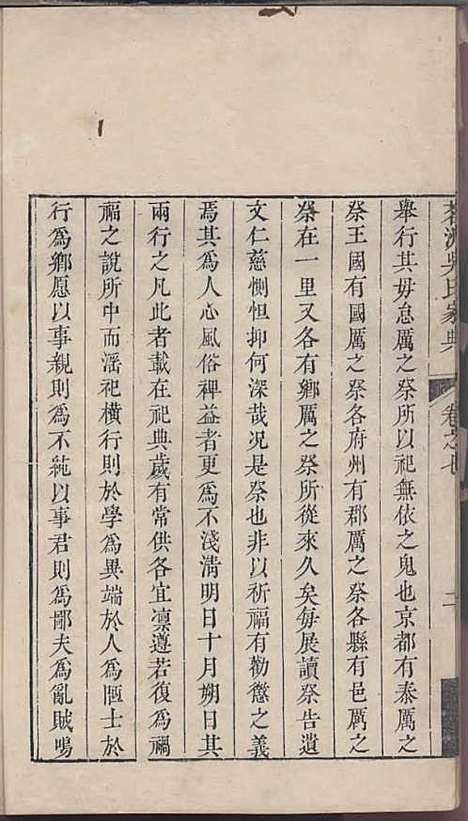 茗洲吳氏家典
卷之七
二
舉行其毋怠厲之祭所以祀無依之鬼也京都有泰厲之
祭王國有國厲之祭各府州有郡厲之祭各縣有邑厲之
祭在一里又各有鄉厲之祭所從來久矣每展讀祭告遺
文仁慈惻怛抑何深哉况是祭也非以祈福有勸懲之義
焉其為人心風俗裨益者更為不淺清明日十月朔日其
兩行之凡此者載在祀典歲有常供各宜凛遵若復為禍
福之說所中而滛祀橫行則於學為異端於人為陋士於
行為鄉愿以事親則為不純以事君則為鄙夫為亂賊嗚